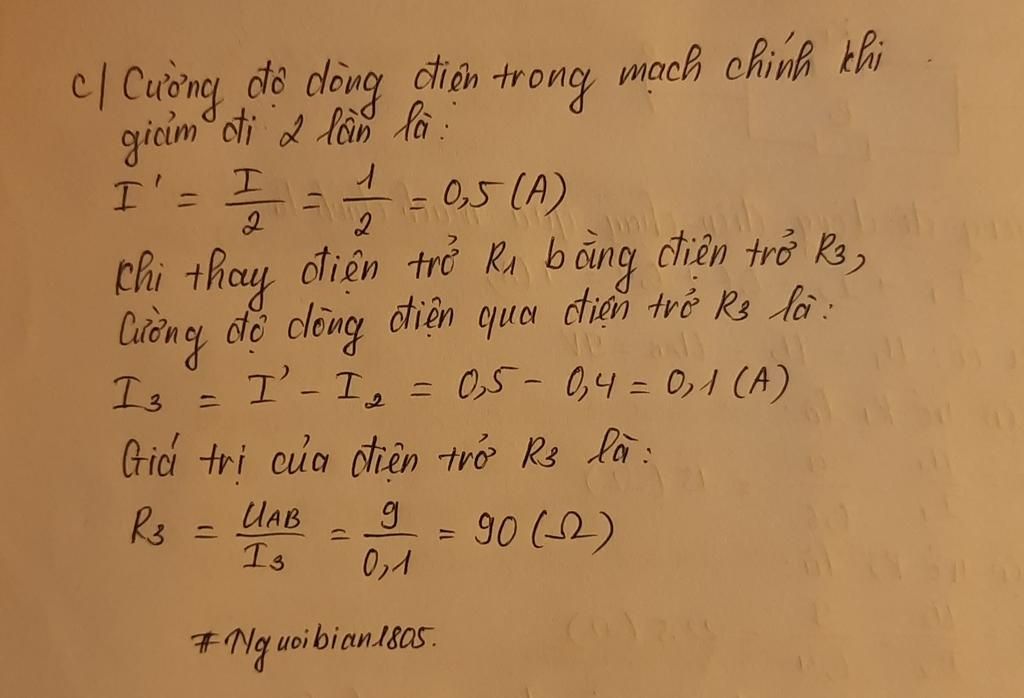 c) Cường độ dòng điện trong mạch chính khi
giảm đi 2 lần là:
I' = I/2 = 1/2 = 0,5 (A)
Khi thay điện trở R1 bằng điện trở R3,
Cường độ dòng điện qua điện trở R3 là:
I3 = I' - I2 = 0,5 - 0,4 = 0,1 (A)
Giá trị của điện trở R3 là:
R3 = UAB/I3 = 9/0,1 = 90 (Ω)
#Nguoibian1805.